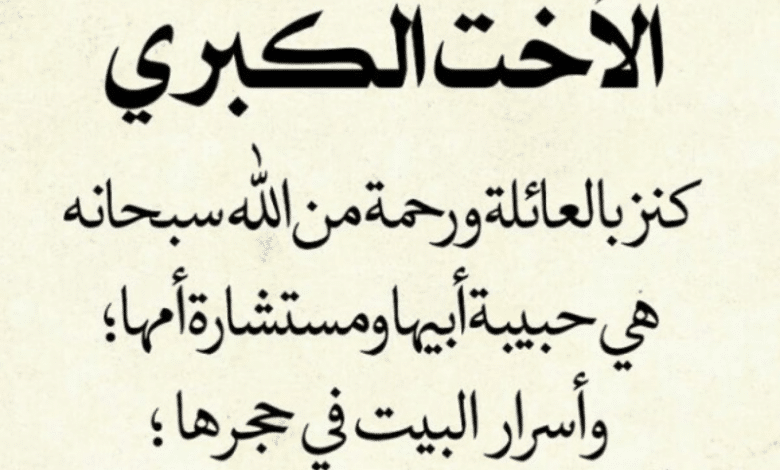 الأخت الكبري
كنز بالعائلة ورحمة من الله سبحانه
هي حبيبة أبيها ومستشارة أمها؛
وأسرار البيت في حجرها ؛